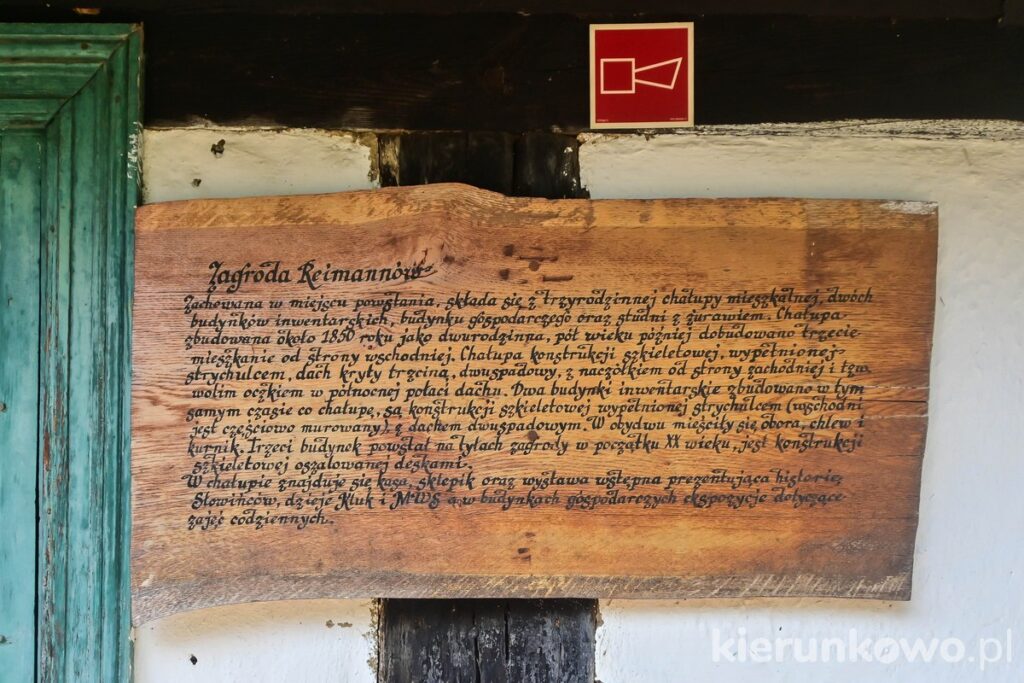 Zagroda Reimannów
Zachowana w miejscu powstania, składa się z trzyrodzinnej chałupy mieszkalnej, dwóch
budynków inwentarskich, budynku gospodarczego oraz studni z żurawiem. Chałupa
zbudowana około 1850 roku jako dwurodzinna, pół wieku później dobudowano trzecie
mieszkanie od strony wschodniej. Chałupa konstrukcji szkieletowej, wypełnionej
strychulcem, dach kryty trzciną, dwuspadowy, z naczółkiem od strony zachodniej i tzw.
wolim oczkiem w północnej połaci dachu. Dwa budynki inwentarskie zbudowano w tym
samym czasie co chałupę, są konstrukcji szkieletowej wypełnionej strychulcem (wschodni
jest częściowo murowany) z dachem dwuspadowym. W obydwu mieściły się obora, chlew i
kurnik. Trzeci budynek powstał na tyłach zagrody w początku XX wieku, jest konstrukcji
szkieletowej oszalowanej deskami.
W chałupie znajduje się kasa, sklepik oraz wystawa wstępna prezentująca historię
Słowińców, dzieje Kluk i MWS a w budynkach gospodarczych ekspozycje dotyczące
zajęć codziennych.
kierunkowo.pl